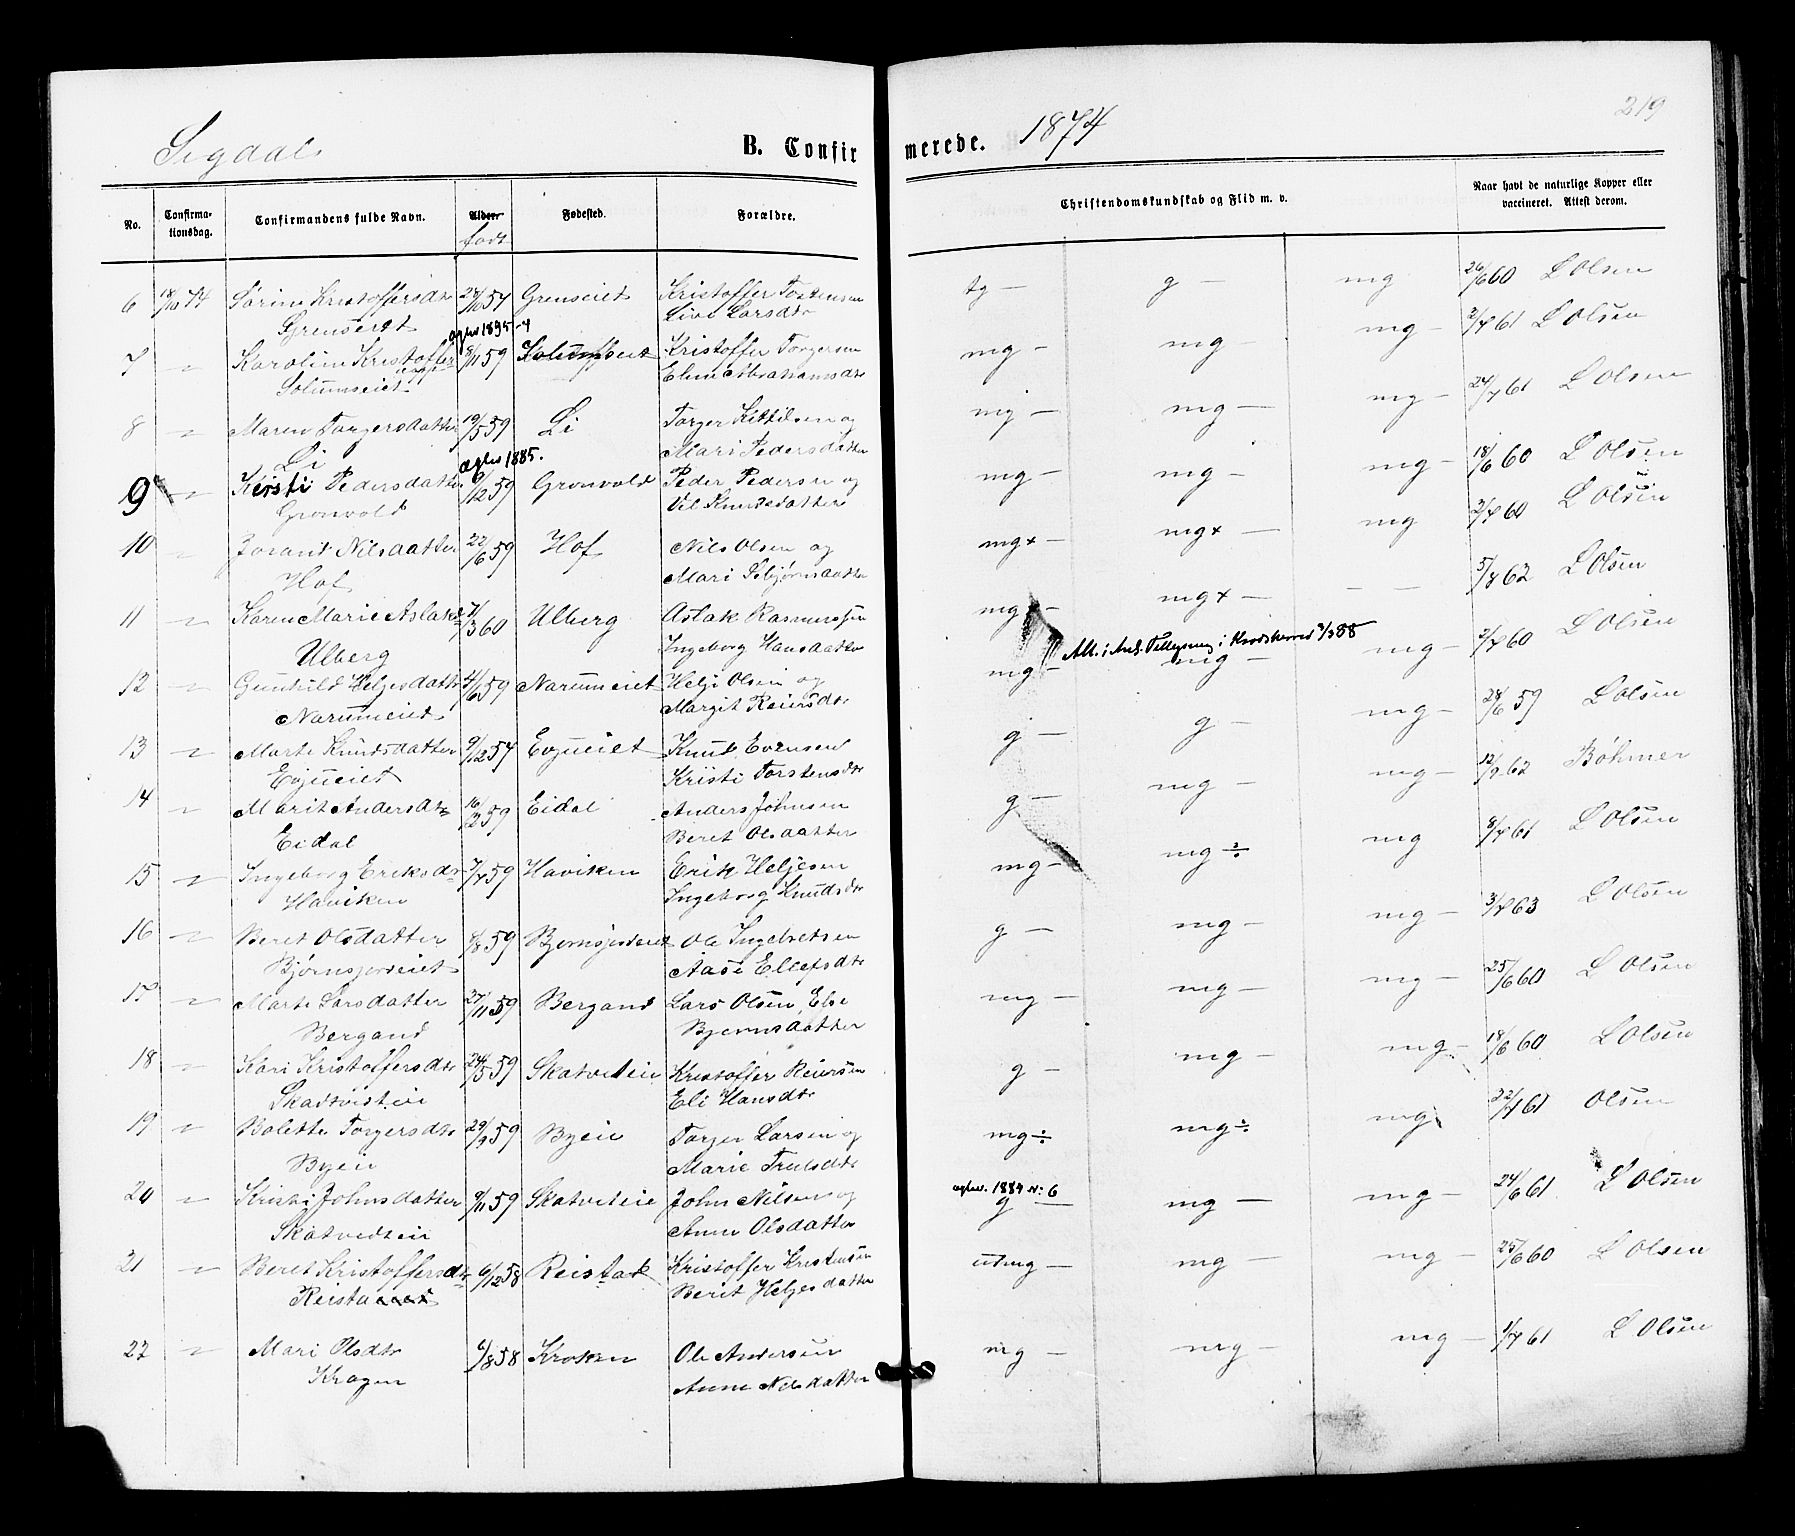 Sigdal B. Confirmerede. 1874 219
No. Confirmationsdag. Confirmandens fulde Navn. Alder. født Fødested. Forældre. Christendomskundskab og Flid m. v. Naar havt de naturlige Kopper eller vaccineret. Attest derom.
6 18/10 74 Sørine Kristoffersdtr 24/10 57 Grenseiet Kristoffer Torstensen tg — g — mg 26/6 60 L Olsen
Grenseiet Live Larsdtr
7 " Karoline Kristoffer 8/11 59 Solumseiet Kristoffer Torgersen mg — mg — mg — 2/7 61 L Olsen
Solumseiet Eline Abrahamsdtr
8 " Maren Torgersdatter 19/5 59 Li Torger Kittilsen og mg — mg — mg — 24/7 61 L Olsen
Li Mari Pedersdatter
9 " Kirsti Pedersdatter 6/12 59 Grønvold Peder Pedersen og mg — mg — mg — 18/6 60 L Olsen
Grønvold Knudsdatter
10 " Jorant Nilsdatter 22/6 59 Hof Nils Olsen og mg+ mg+ — mg 2/7 60 L Olsen
Hof Mari
11 " Karen Marie Aslaksd 7/3 60 Ulberg Aslak Rasmussen mg — mg+ — — — 5/8 62 L Olsen
Ulberg Ingeborg Hansdatter
12 " Gunhild Helgesdatt 4/6 59 Narumeiet Helge Olsen og mg — mg — mg — 2/7 60 L Olsen
Narumeiet Margit Reiersdtr
13 " Marte Knudsdatter 9/12 57 Evjueiet Knut Evensen g — g — mg — 28/6 59 L Olsen
Evjueiet Kristi Torstensdtr
14 " Marit Andersdtr 16/2 59 Eidal Anders Johnsen g — mg — mg — 12/9 62 Bøhmer
Eidal Beret Olsdatter
15 " Ingeborg Eriksdtr 7/7 59 Haviken Erik Helgesen mg — mg ÷ mg 8/7 61 L Olsen
Haviken Ingeborg Knudsdtr
16 " Beret Olsdatter 8/8 59 Ole Ingebretsen g — mg — mg — 3/7 63 L Olsen
Aase Ellefsdtr
17 " Marte Larsdatter 27/11 59 Bergand Lars Olsen, Else mg — mg — mg — 25/6 60 L Olsen
Bergand Bjørnsdatter
18 " Kari Kristoffersdtr 24/5 59 Skatveteie Kristoffer Reiersen g — mg — mg — 18/6 60 L Olsen
Eli Hansdtr
19 " Bolette Torgersdtr 29/9 59 Byeie Torger Larsen og mg ÷ mg ÷ mg 22/7 61 Olsen
Byeie Marie Trulsdtr
20 " Kristi Johnsdatter 9/11 59 Skatveteie John Nilsen og g — mg — mg — 24/6 61 L Olsen
Skatvedteie Anne Olsdatter
21 " Beret Kristoffersdtr 6/12 58 Reistad Kristoffer Kristensen utmg — mg — mg — 25/6 60 L Olsen
Berit Helgesdatter
22 " Mari Olsdtr 6/8 58 Kroken Ole Andersen mg — mg — mg — 1/7 61 L Olsen
Krogen Anne Nilsdatter